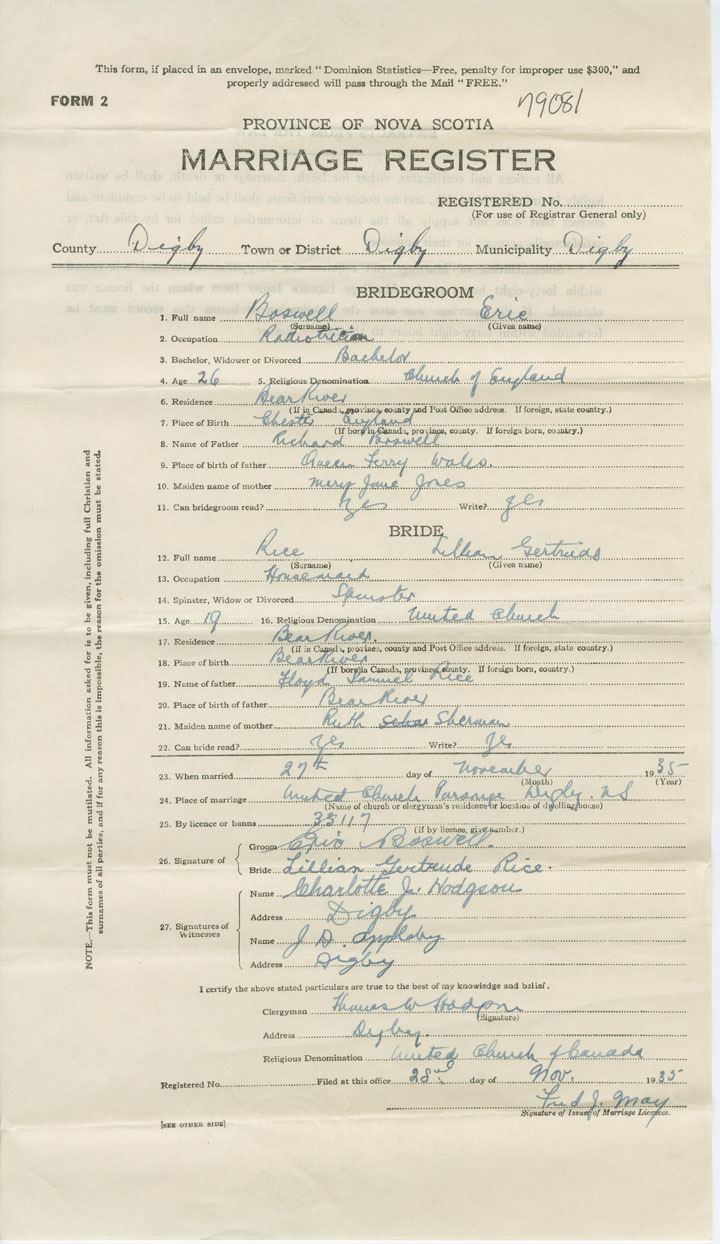 This form, if placed in an envelope, marked "Dominion Statistics—Free, penalty for improper use $300," and
properly addressed will pass through the Mail "FREE."
FORM 2
79081
PROVINCE OF NOVA SCOTIA
MARRIAGE REGISTER
REGISTERED No.
(For use of Registrar General only)
County Digby Town or District Digby Municipality Digby
BRIDEGROOM
1. Full name Boswell Eric
(Surname) (Given name)
2. Occupation
3. Bachelor, Widower or Divorced Bachelor
4. Age 26 5. Religious Denomination Church of England
6. Residence Bear River
(If in Canada, province, county and Post Office address. If foreign, state country.)
7. Place of Birth Chester England
(If born in Canada, province, county. If foreign born, country.)
8. Name of Father Richard Boswell
9. Place of birth of father Queen Ferry Wales.
10. Maiden name of mother Mary Jane Jones
11. Can bridegroom read? Yes Write? Yes
BRIDE
12. Full name Rice Lillian Gertrude
(Surname) (Given name)
13. Occupation Housemaid
14. Spinster, Widow or Divorced Spinster
15. Age 19 16. Religious Denomination United Church
17. Residence Bear River.
(If in Canada, province, county and Post Office address. If foreign, state country.)
18. Place of birth Bear River
(If born in Canada, province, county. If foreign born, country.)
19. Name of father Floyd Samuel Rice
20. Place of birth of father Bear River
21. Maiden name of mother Ruth Sherman
22. Can bride read? Yes Write? Yes
23. When married 27th day of November 1935
(Month) (Year)
24. Place of marriage United Church Parsonage Digby. N S
(Name of church or clergyman's residence or location of dwelling house)
25. By licence or banns 33117
(if by licence, give number.)
26. Signature of
Groom Eric Boswell.
Bride Lillian Gertrude Rice.
27. Signatures of Witnesses
Name Charlotte J. Hodgson
Address Digby
Name J. D. Appleby
Address Digby
I certify the above stated particulars are true to the best of my knowledge and belief.
Clergyman Thomas W Hodgson
(Signature)
Address Digby.
Religious Denomination United Church of Canada
Registered No. Filed at this office 28 day of Nov. 1935
Fred J. May
Signature of Issuer of Marriage Licences.
[SEE OTHER SIDE]
NOTE.—This form must not be mutilated. All information asked for is to be given, including full Christian and
surnames of all parties, and if for any reason this is impossible, the reason for the omission must be stated.